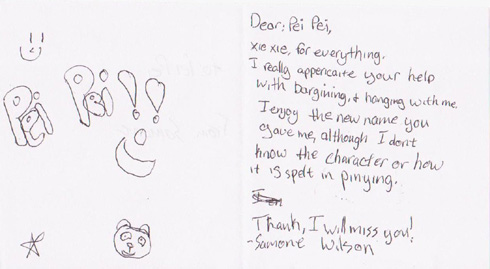 Pei Pei!!
Dear: Pei Pei,
xie xie, for everything.
I really appencaite your help
with bargining, & hanging with me.
I enjoy the new name you
gave me, although I don't
know the character or how
it is spelt in pinying.
Thank, I will miss you!
-Samone Wilson